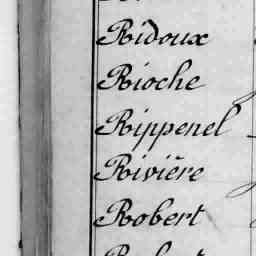 Ridoux
Rioche
Rippenel
Rivière
Robert